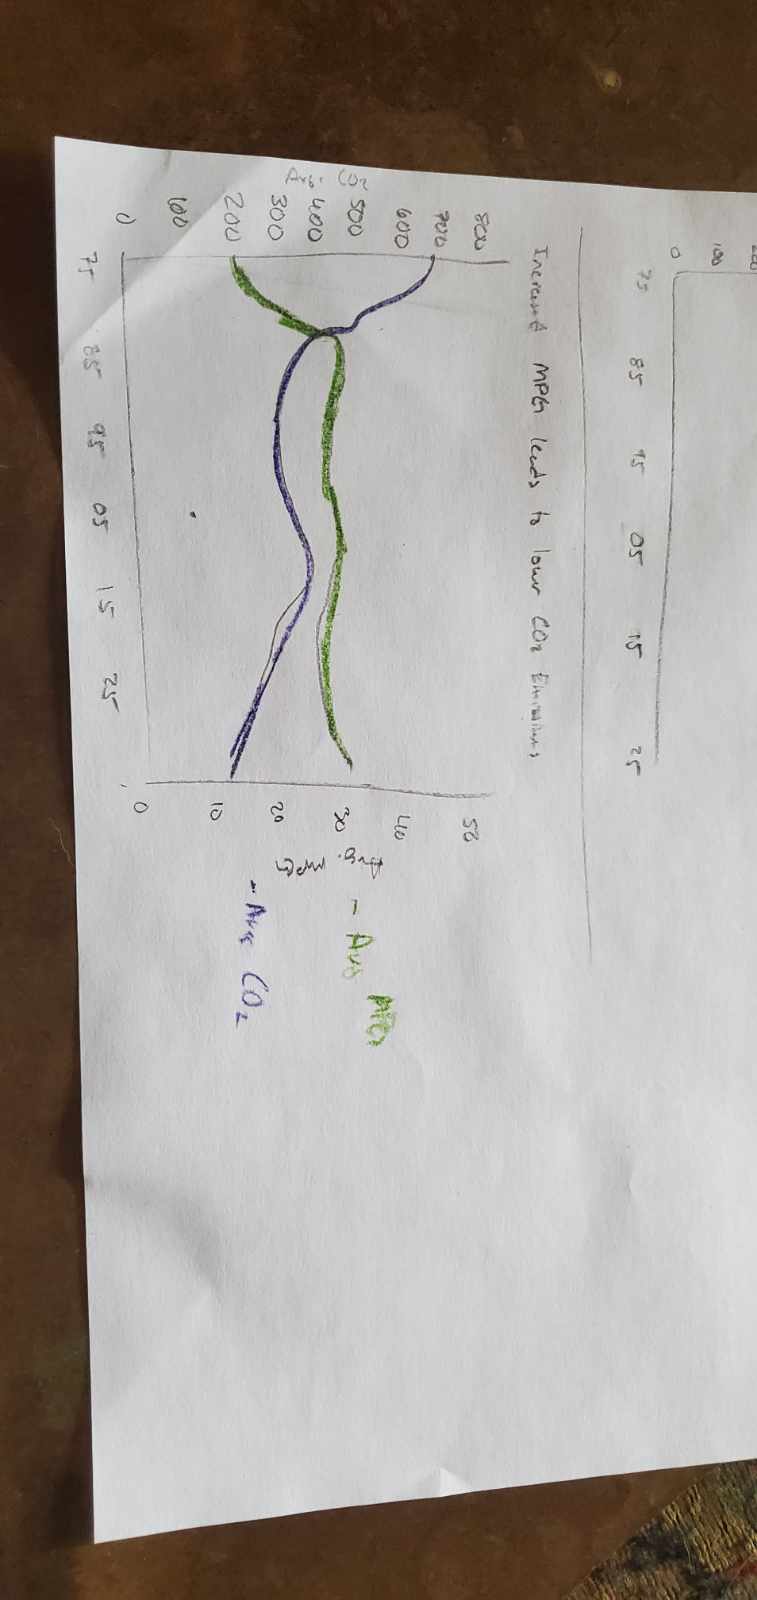 200
100
0
75 85 95 05 15 25
Increasd MPG leads to lowr CO₂ Emissions
800
700
600
500
400
300
200
100
0
Avg. CO2
75 85 95 05 15 25
50
40
30
20
10
0
Avg. MPG
- Avg MPG
- Avg CO₂